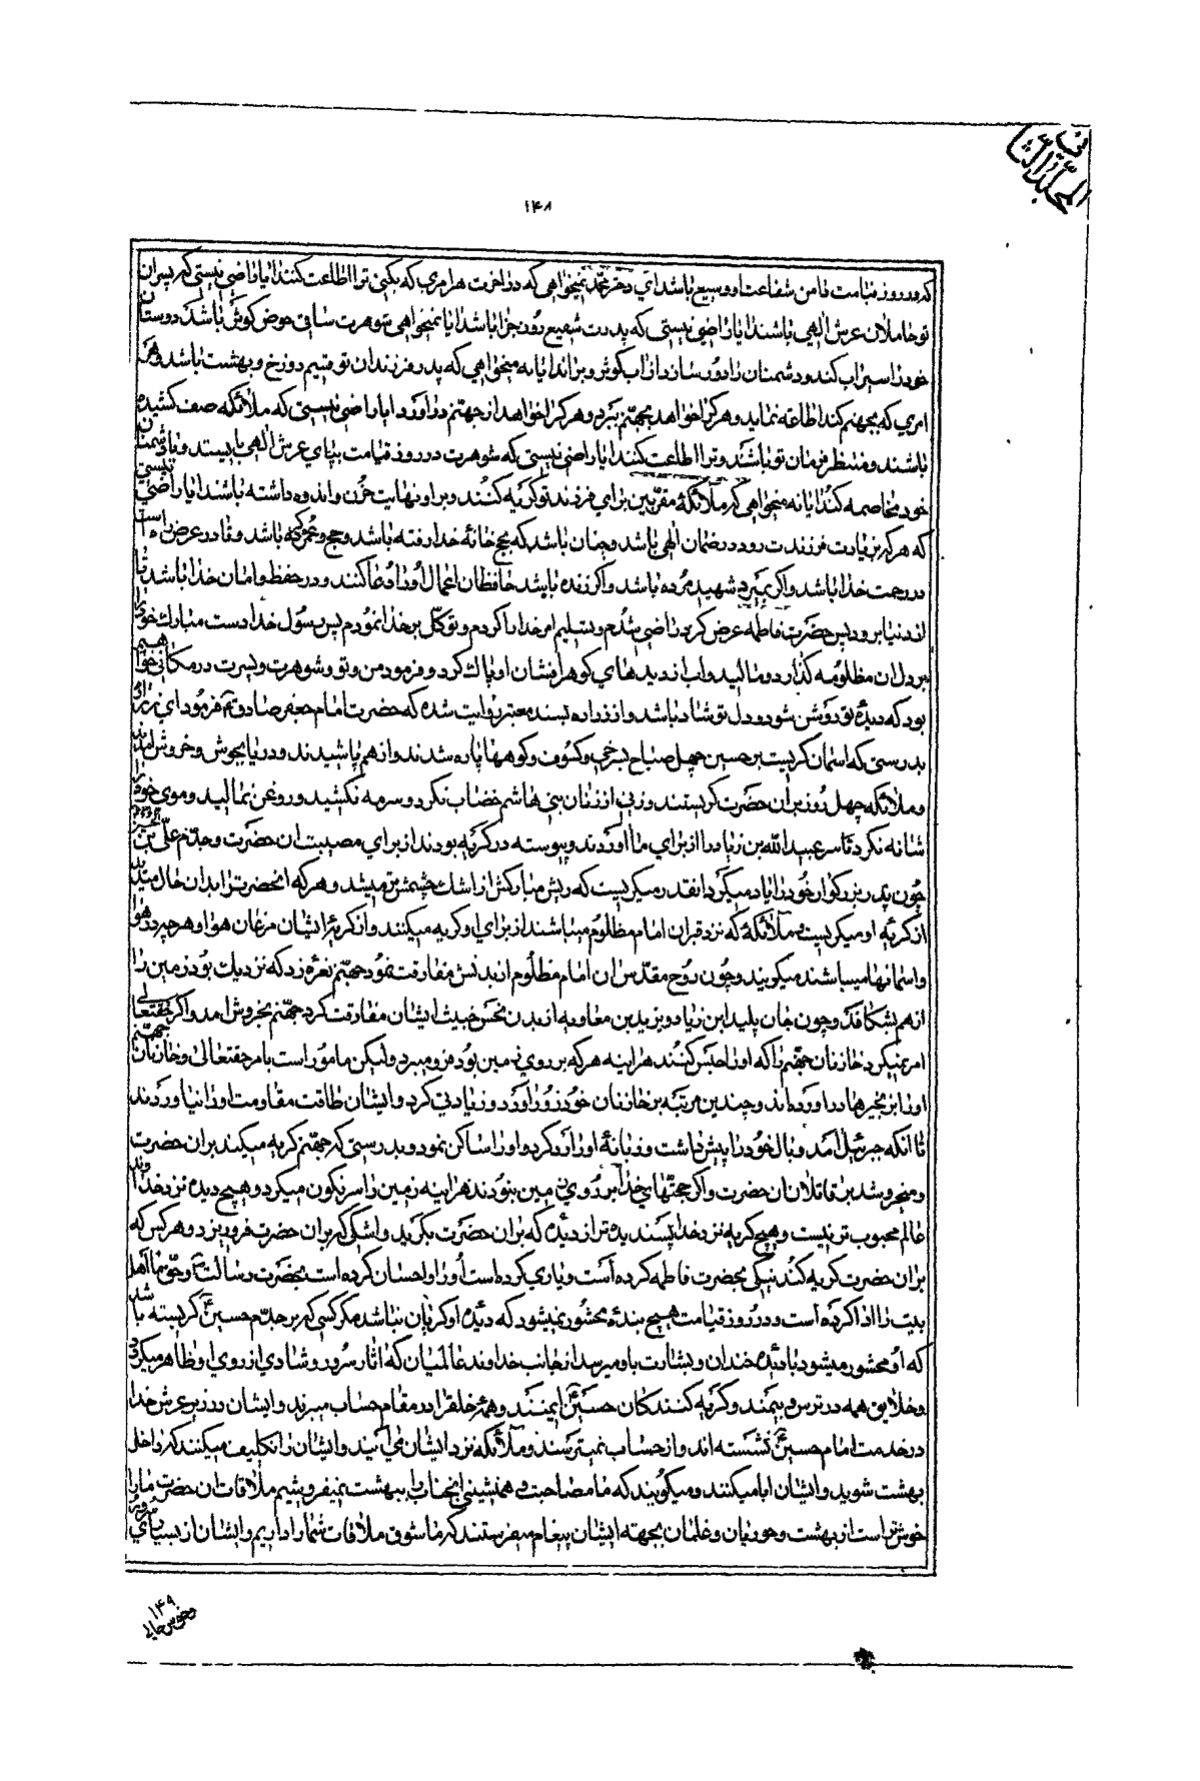 المجلد الثانی
۱۴۸
که در روز قیامت دامن شفاعت او وسیع باشد ای دختر محمد نمیخواهی که در اخرت هر امری که بکنی ترا اطاعت کنند ایا راضی نیستی که پسران
تو حاملان عرش الهی باشند ایا راضی نیستی که پدرت شفیع روز جزا باشد ایا نمیخواهی شوهرت ساقی حوض کوثر باشد که دوستان
خود را سیراب کند و دشمنان را دور سازد از اب کوثر و براند ایا نه میخواهی که پدر فرزندان تو قسیم دوزخ و بهشت باشد و هر
امری که بجهنم کند اطاعه نماید و هر کرا خواهد بجهنم ببرد و هر کرا خواهد از جهنم در اورد ایا راضی نیستی که ملائکه صف کشیده
باشند و منتظر فرمان تو باشند و ترا اطاعت کنند ایا راضی نیستی که شوهرت در روز قیامت بپای عرش الهی بایستد و با دشمنان
خود مخاصمه کند ایا نه میخواهی که ملائکهٔ مقربین برای فرزند تو کریه کنند و بر او نهایت حزن و اندوه داشته باشند ایا راضی نیستی
که هر که بزیارت فرزندت رود در ضمان الهی باشد و چنان باشد که بحج خانهٔ خدا رفته باشد و حج و عمره کرده باشد و
در رحمت خدا باشد و اکر بمیرد شهید مرده باشد و اکر زنده باشد حافظان اعمال او را دعا کنند و در حفظ و امان خدا باشد تا
از دنیا برود پس حضرت فاطمه عرض کرد راضی شدم و تسلیم امر خدا کردم و توکل بر خدا نمودم پس رسول خدا دست مبارک خود را
بر دل ان مظلومه کذارد و مالید و اب از دیدهای کوهر افشان او پاک کرد و فرمود من و تو و شوهرت و پسرت در مکانی خواهیم
بود که دیدهٔ تو روشن شود و دل تو شاد باشد و از زراره بسند معتبر روایت شده که حضرت امام جعفر صادق ع فرمود ای زراره
بدرستی که اسمان کریست بر حسین چهل صباح بسرخی و کسوف و کوهها پاره شدند و از هم پاشیدند و دریا بجوش و خروش امدند
و ملائکه چهل روز بر ان حضرت کریستند و زنی از زنان بنی هاشم خضاب نکرد و سرمه نکشید و روغن نمالید و موی خود را
شانه نکرد تا سر عبید الله بن زیاد را از برای ما اوردند و پیوسته در کریه بودند از برای مصیبت ان حضرت و جدم علی بن الحسین
چون پدر بزرکوار خود را یاد میکرد انقدر میکریست که ریش مبارکش از اشک چشمش تر میشد و هر که انحضرت را بدان حال میدید
از کریهٔ او میکریست و ملائکهٔ که نزد قبر ان امام مظلوم میباشند از برای او کریه میکنند و از کریهٔ ایشان مرغان هوا و هر چه در هوا
و اسمانها میباشند میکریند و چون روح مقدس ان امام مظلوم از بدنش مفارقت نمود جهنم نعره زد که نزدیک بود زمین را
از هم بشکافد و چون جان پلید ابن زیاد و یزید بن معاویه از بدن نحس خبیث ایشان مفارقت کرد جهنم بخروش امد و اکر حقتعالی
امر نمیکرد خازنان جهنم را که او را حبس کنند هراینه هر که بر روی زمین بود فرو میبرد و لیکن مامور است بامر حقتعالی و خازنان جهنم
او را بزنجیرها در اورده اند و چندین مرتبه بر خازنان خود زور اورد و زیادتی کرد و ایشان طاقت مقاومت او را نیاوردند
تا انکه جبرئیل امد و بال خود را پیش داشت و زبانهٔ او را رد کرد و او را ساکن نمود و بدرستی که جهنم کریه میکند بر ان حضرت
و میخروشد بر قاتلان ان حضرت و اکر حجتهای خدا بر روی زمین نبودند هراینه زمین را سرنکون میکرد و هیچ دیده نزد خداوند
عالم محبوب تر نیست و هیچ کریه نزد خدا پسندیده تر از دیدهٔ که بر ان حضرت بکرید و اشکی که بر ان حضرت فرو ریزد و هر کس که
بران حضرت کریه کند نیکی بحضرت فاطمه کرده است و یاری کرده است او را و احسان کرده است بحضرت رسالت ص و حق ما اهل
بیت را ادا کرده است و در روز قیامت هیچ بندهٔ محشور نمیشود که دیدهٔ او کریان نباشد مکر کسی که بر جدم حسین ع کریسته باشد
که او محشور میشود با دیدهٔ خندان و بشارت باو میرسد از جانب خداوند عالمیان که اثار سرور و شادی از روی او ظاهر میکردد
و خلایق همه در ترس و بیمند و کریه کنندکان حسین ع ایمنند و همهٔ خلق را در مقام حساب میبرند و ایشان در زیر عرش خدا
در خدمت امام حسین ع نشسته اند و از حساب نمیترسند و ملائکه نزد ایشان می ایند و ایشان را تکلیف میکنند که داخل
بهشت شوید و ایشان ابا میکنند و میکویند که ما مصاحبت و همنشینی انجناب را ببهشت نمیفروشیم ملاقات ان حضرت ما را
خوش تر است از بهشت و حوریان و غلمان بجهته ایشان پیغام میفرستند که ما شوق ملاقات شما را داریم و ایشان از بسیاری سرور
۱۴۹
و خوش حالی